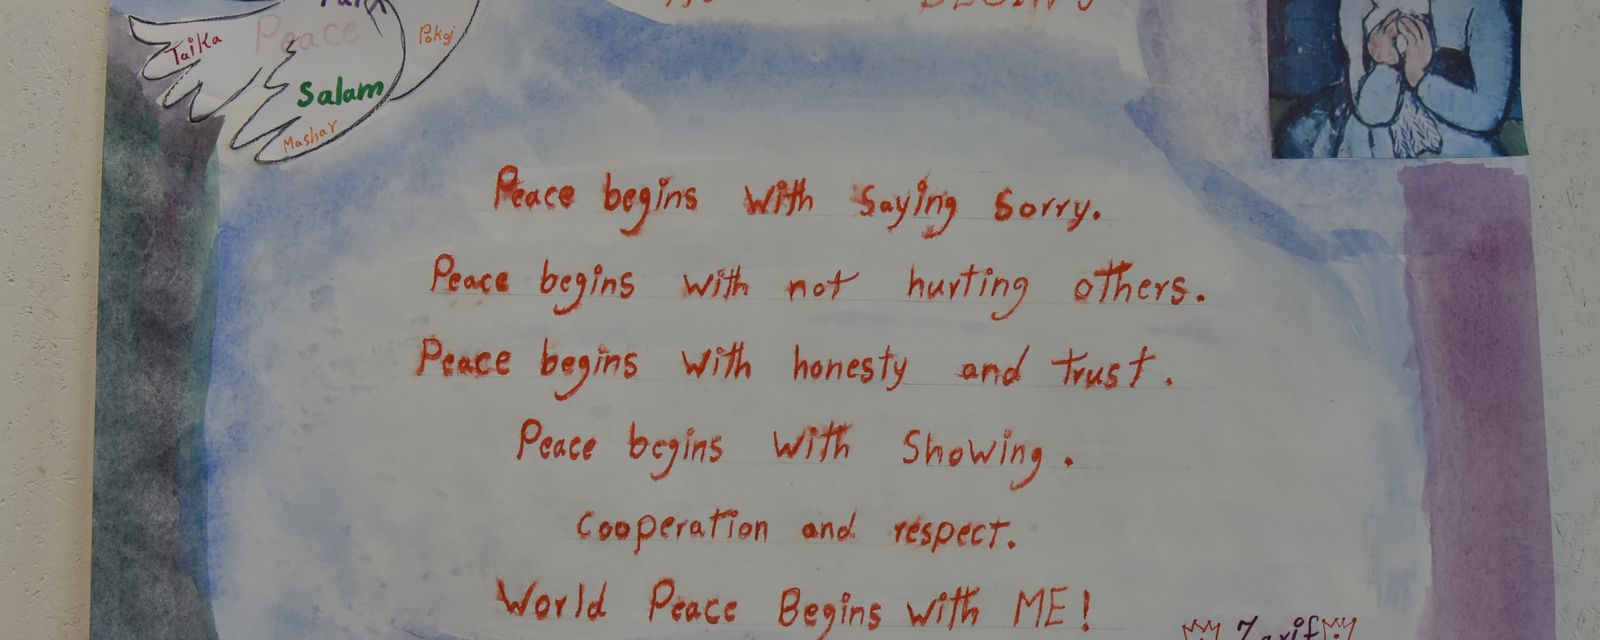 Peace
Taika
Pokoj
Salam
Mashar
Peace begins with saying sorry.
Peace begins with not hurting others.
Peace begins with honesty and trust.
Peace begins with Showing.
Cooperation and respect.
World Peace Begins with ME!
Zarif